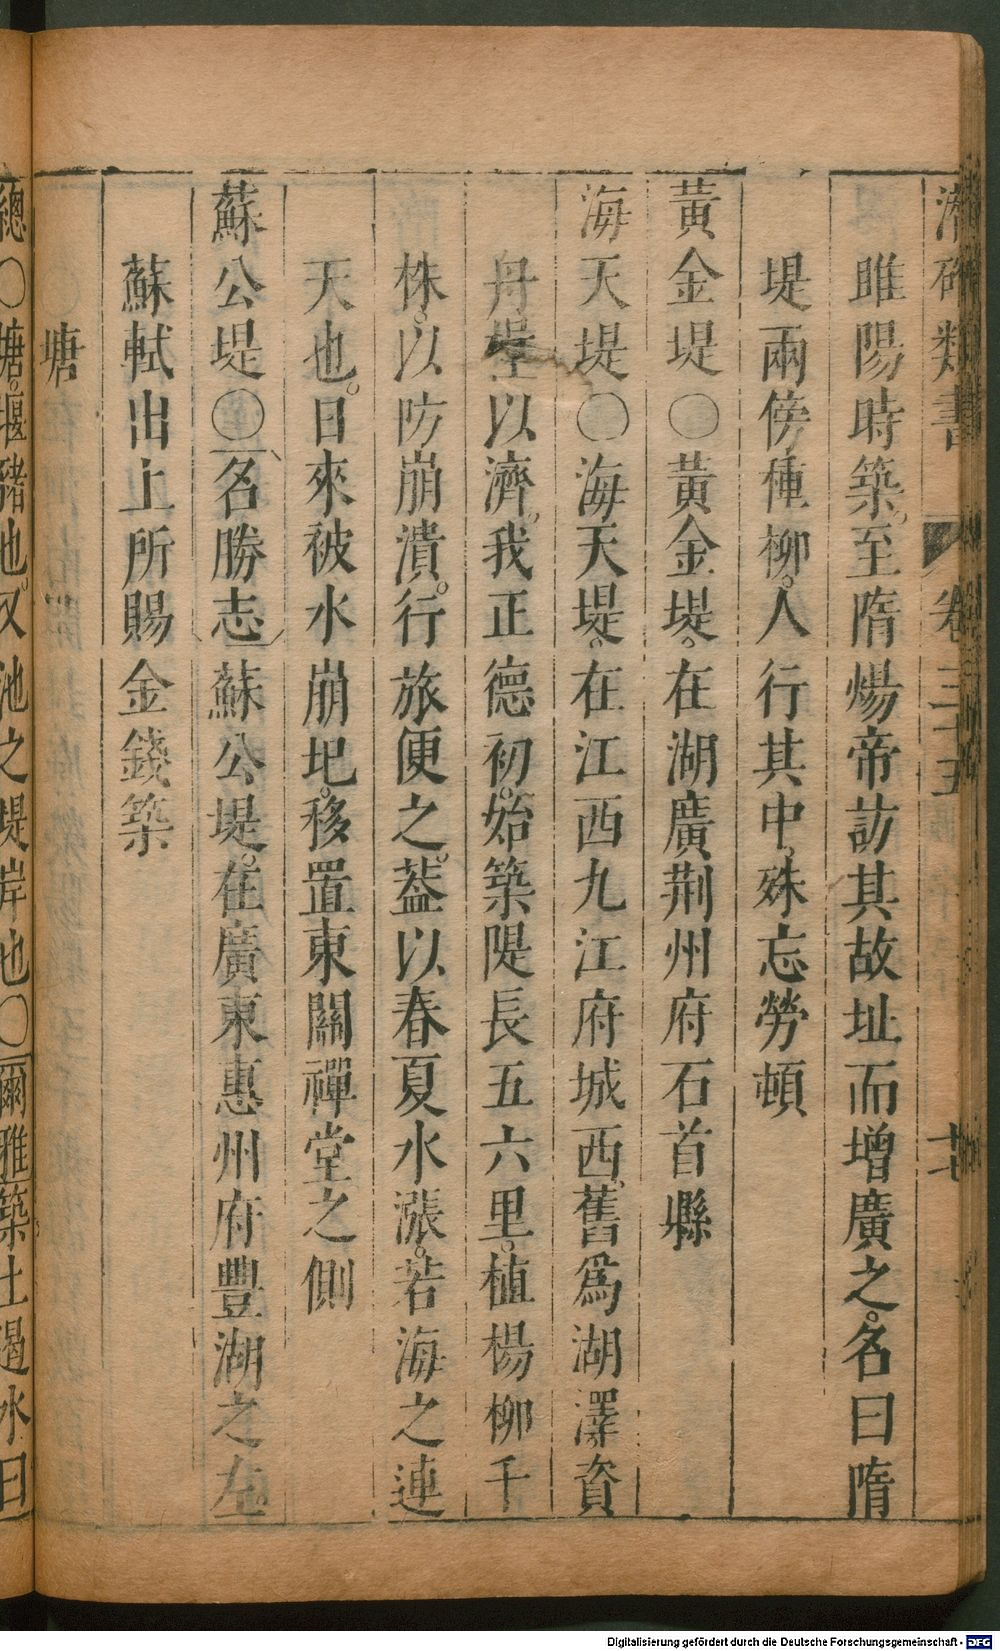 潛確類書 卷三十五 十七
睢陽時築。至隋煬帝訪其故址而增廣之。名曰隋
堤兩傍種柳。人行其中。殊忘勞頓
黃金堤〇黃金堤。在湖廣荆州府石首縣
海天堤〇海天堤。在江西九江府城西。舊爲湖澤資
舟以濟。我正德初。始築隄長五六里。植楊柳千
株。以防崩潰。行旅便之。葢以春夏水漲。若海之連
天也。日來被水崩圯。移置東關禪堂之側
蘇公堤〇名勝志蘇公堤。在廣東惠州府豐湖之左
蘇軾出上所賜金錢築
塘
總〇塘。堰豬也。又池之堤岸也〇爾雅築土遏水曰
Digitalisierung gefördert durch die Deutsche Forschungsgemeinschaft - DFG